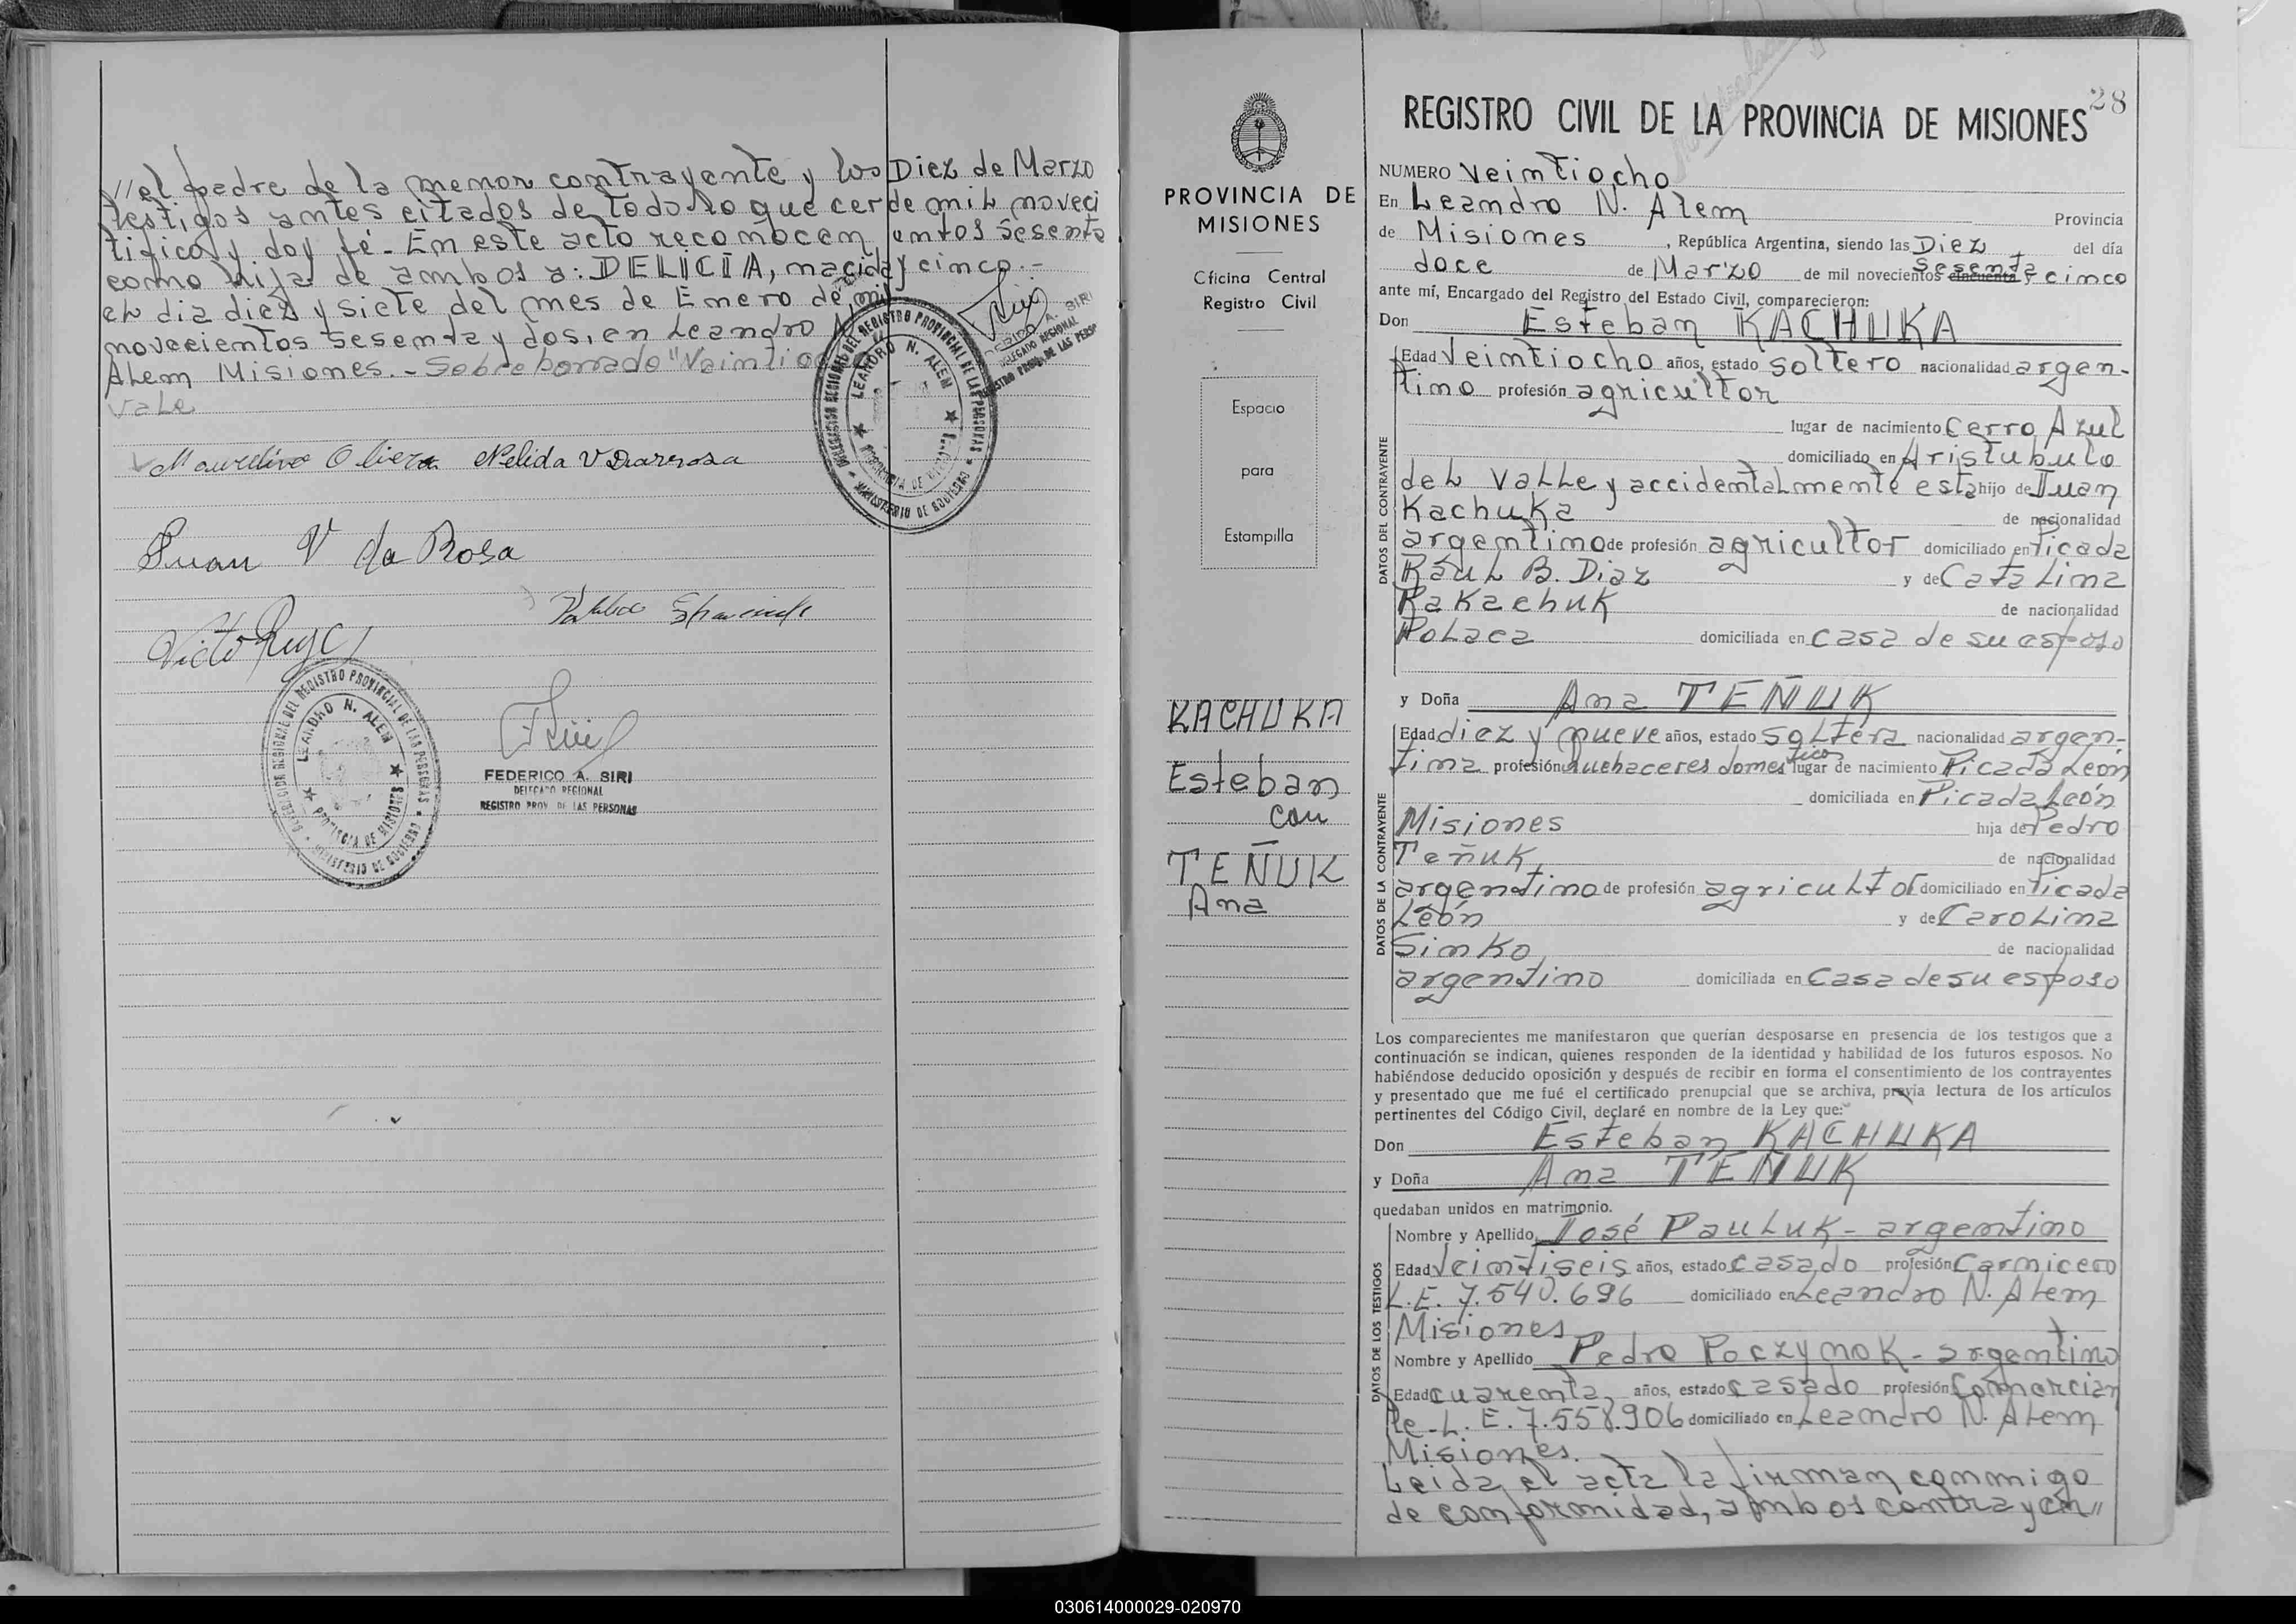 //el padre de la menor contrayente y los
testigos antes citados de todo lo que cer
tifico y doy fé - En este acto reconocen
como hija de ambos a: DELICIA, nacida
el dia diez y siete del mes de Enero de mil
novecientos sesenta y dos, en Leandro N.
Alem Misiones. - Sobre borrado "Veintio
Vale
Diez de Marzo
de mil noveci
entos sesenta
y cinco.-
DELEGADO REGIONAL
Maurelino Olivera Nelida V Darrosa
Juan V da Rosa
LEANDRO N. ALEM
PROVINCIA DE MISIONES
MINISTERIO DE GOBIERNO
FEDERICO A. SIRI
DELEGADO REGIONAL
REGISTRO PROV. DE LAS PERSONAS
PROVINCIA DE
MISIONES
Oficina Central
Registro Civil
Espacio
para
Estampilla
KACHUKA
Esteban
con
TEÑUK
Ana
28
REGISTRO CIVIL DE LA PROVINCIA DE MISIONES
NUMERO Veintiocho
En Leandro N. Alem Provincia
de Misiones, República Argentina, siendo las Diez del día
doce de Marzo de mil novecientos cincuenta sesenta y cinco
ante mí, Encargado del Registro del Estado Civil, comparecieron:
Don Esteban KACHUKA
DATOS DEL CONTRAYENTE
Edad Veintiocho años, estado soltero nacionalidad argen-
tino profesión agricultor
lugar de nacimiento Cerro Azul
domiciliado en Aristubulo
del Valle y accidentalmente esta hijo de Juan
Kachuka de nacionalidad
argentino de profesión agricultor domiciliado en Picada
Raúl B. Diaz y de Catalina
Rakachuk de nacionalidad
Polaca domiciliada en casa de su esposo
y Doña Ana TEÑUK
DATOS DE LA CONTRAYENTE
Edad diez y nueve años, estado soltera nacionalidad argen-
tina profesión Quehaceres domesticos lugar de nacimiento Picada León
domiciliada en Picada León
Misiones hija de Pedro
Teñuk, de nacionalidad
argentino de profesión agricultor domiciliado en Picada
León y de Carolina
Sinko de nacionalidad
argentino domiciliada en Casa de su esposo
Los comparecientes me manifestaron que querían desposarse en presencia de los testigos que a
continuación se indican, quienes responden de la identidad y habilidad de los futuros esposos. No
habiéndose deducido oposición y después de recibir en forma el consentimiento de los contrayentes
y presentado que me fué el certificado prenupcial que se archiva, previa lectura de los artículos
pertinentes del Código Civil, declaré en nombre de la Ley que:
Don Esteban KACHUKA
y Doña Ana TEÑUK
quedaban unidos en matrimonio.
DATOS DE LOS TESTIGOS
Nombre y Apellido José Pauluk - argentino
Edad Veintiseis años, estado casado profesión Carnicero
L.E. 7.540.696 domiciliado en Leandro N. Alem
Misiones
Nombre y Apellido Pedro Poczynok - argentino
Edad cuarenta años, estado casado profesión Comercian
te - L. E. 7.558.906 domiciliado en Leandro N. Alem
Misiones.
Leida el acta la firman conmigo
de conformidad, ambos contrayen//
030614000029-020970